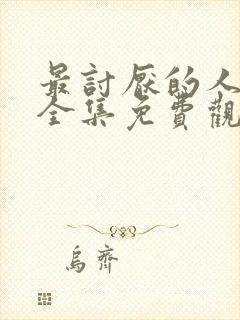 最討厭的人
全集免費觀
烏齊